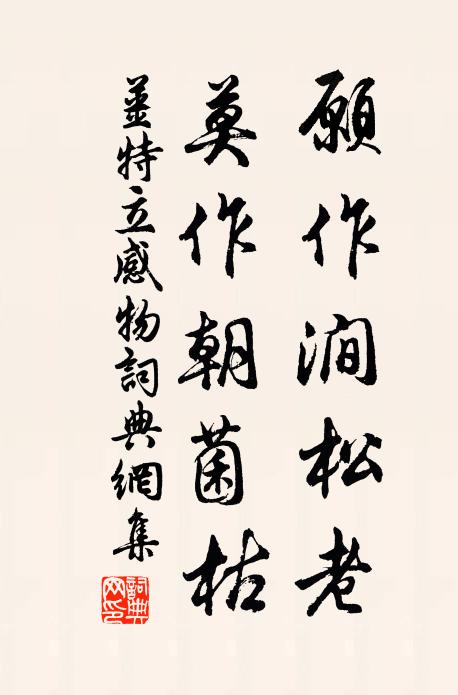 願作澗松老
莫作朝菌枯
姜特立感物詞典網集
詞典網印